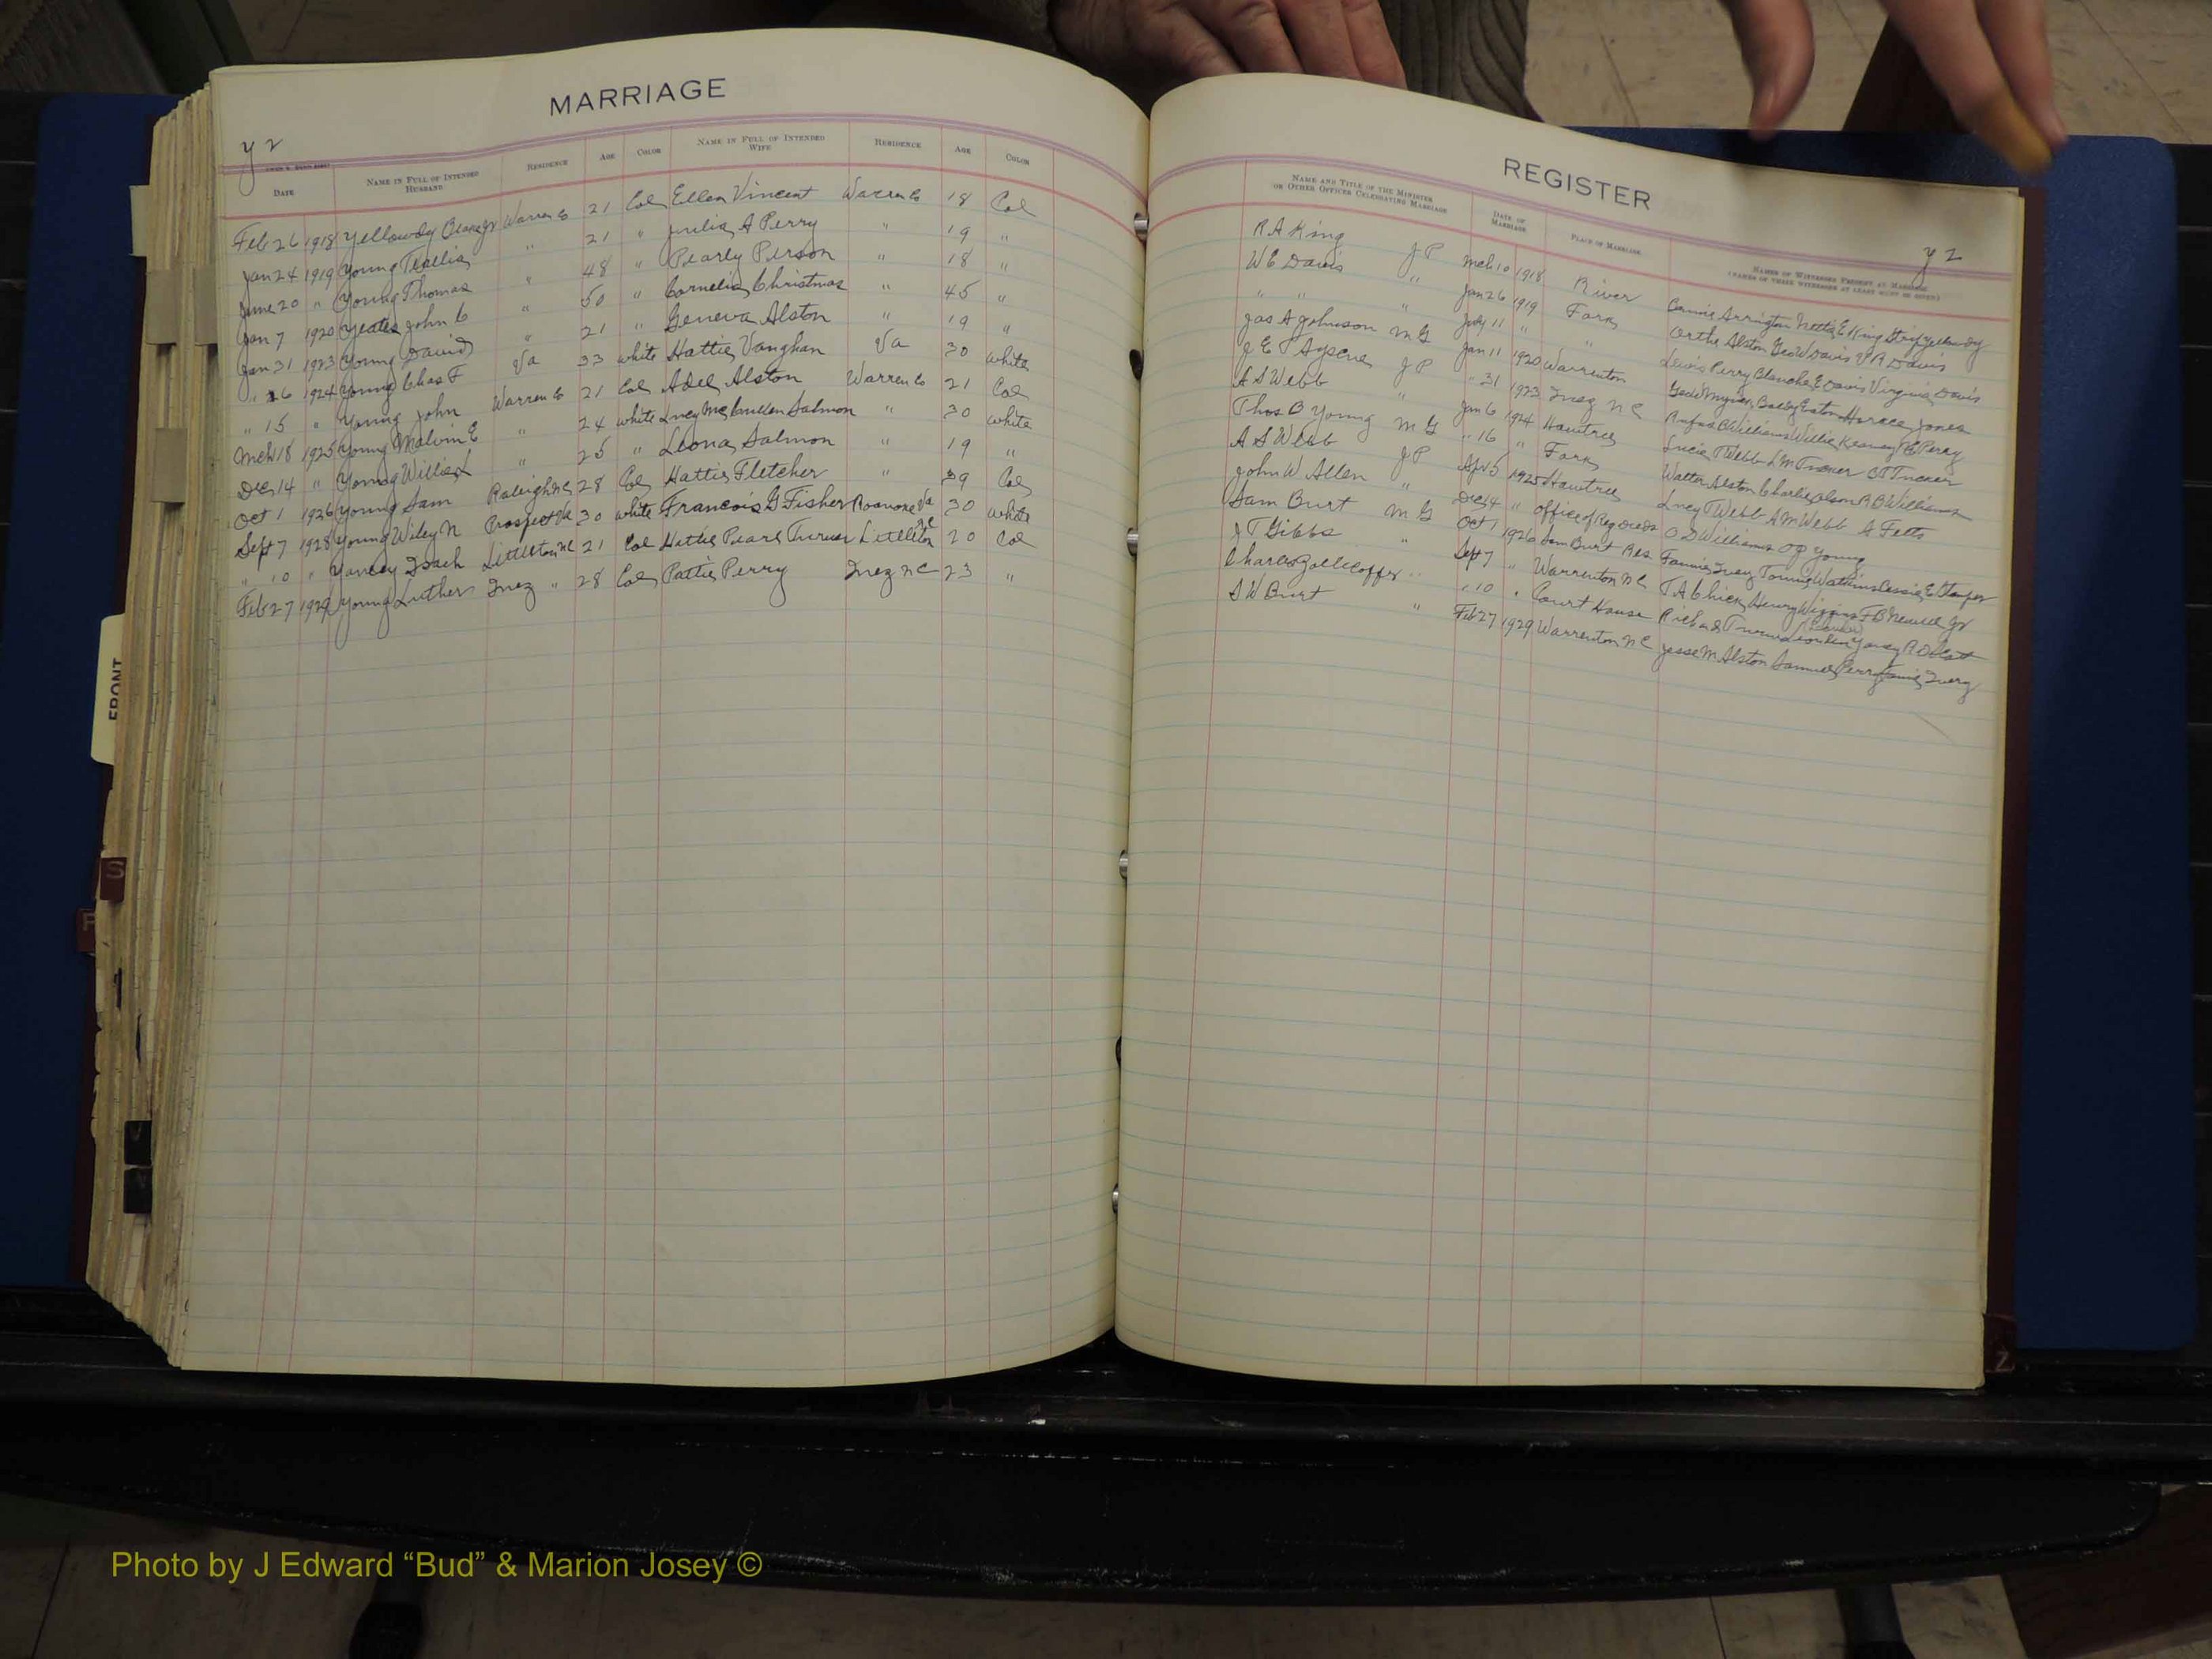 MARRIAGE
Y Z
DATE NAME IN FULL OF INTENDED HUSBAND RESIDENCE AGE COLOR NAME IN FULL OF INTENDED WIFE RESIDENCE AGE COLOR
Feb 26 1918 Yellowdy Warren Co 21 Col Ellen Vincent Warren Co 18 Col
Jan 24 1919 Young " 21 " Julia A Perry " 19 "
June 20 " Young Thomas " 48 " Pearly Person " 18 "
Jan 7 1920 Yeates John C " 50 " Cornelia Christmas " 45 "
Jan 31 1923 Young David " 21 " Geneva Alston " 19 "
" 6 1924 Young Chas F Va 33 white Hattie Vaughan Va 30 white
" 15 " Young John Warren Co 21 Col Adel Alston Warren Co 21 Col
Mch 18 1925 Young Melvin E " 24 white Lucy McCullen Salmon " 30 white
Dec 14 " Young Willie L " 25 " Leona Salmon " 19 "
Oct 1 1926 Young Sam Raleigh NC 28 Col Hattie Fletcher " 39 Col
Sept 7 1928 Young Wiley N Prospect Va 30 white Francois G Fisher Roanoke Va 30 white
" 10 " Yancey Littleton NC 21 Col Hattie Pearl Turner Littleton NC 20 Col
Feb 27 1929 Young Luther Inez " 28 Col Pattie Perry Inez NC 23 "
REGISTER
Y Z
NAME AND TITLE OF THE MINISTER OR OTHER OFFICER CELEBRATING MARRIAGE DATE OF MARRIAGE PLACE OF MARRIAGE NAMES OF WITNESSES PRESENT AT MARRIAGE
R A King J P Mch 10 1918 River Arrington Nettie E King Yellowdy
W E Davis " Jan 26 1919 Fork Alston Geo W Davis V A Davis
" " " July 11 " " Lewis Perry Blanche E Davis Virginia Davis
Jas A Johnson M G Jan 11 1920 Warrenton Horace Jones
J E J P " 31 1923 Inez N C Rufus Williams Willie Kearney Perry
A S Webb " Jan 6 1924 Hawtree Lucie T Webb L M Turner Tucker
Thos B Young M G " 16 " Fork Walter Alston Charlie R B Williams
A S Webb J P Apr 5 1925 Hawtree Lucy T Webb A M Webb A Felts
John W Allen " Dec 14 " Office of Reg Deeds O D Williams O P Young
Sam Burt M G Oct 1 1926 Sam Burt Res Fannie Ivey Watkins Cassie E
J T Gibbs " Sept 7 " Warrenton N C T A Chick Henry Wiggins F B Newell Jr
Charles Zollicoffer " " 10 " Court House Richard Turner Yancey
S W Burt " Feb 27 1929 Warrenton N C Jesse M Alston Samuel Perry Fannie Ivey
FRONT
S
Z
Photo by J Edward “Bud” & Marion Josey ©